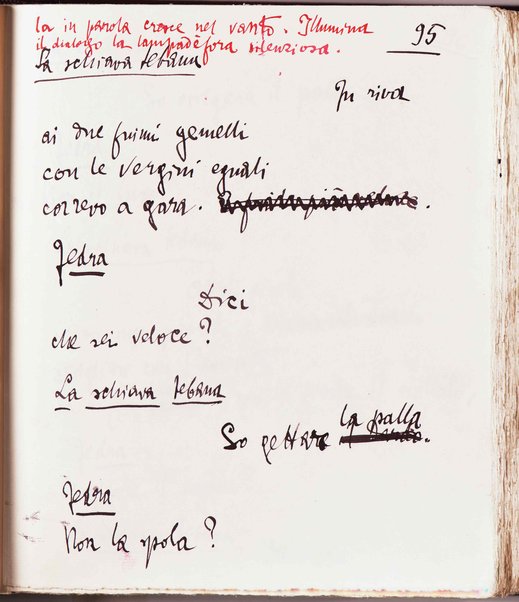 la in parola cresce nel vanto. Illumina
il dialogo la lampadèfora silenziosa.
95
La schiava tebana
In riva
ai due fiumi gemelli
con le vergini eguali
correvo a gara.
Fedra
Dici
che sei veloce?
La schiava tebana
So gettare la palla.
Fedra
Non la spola?